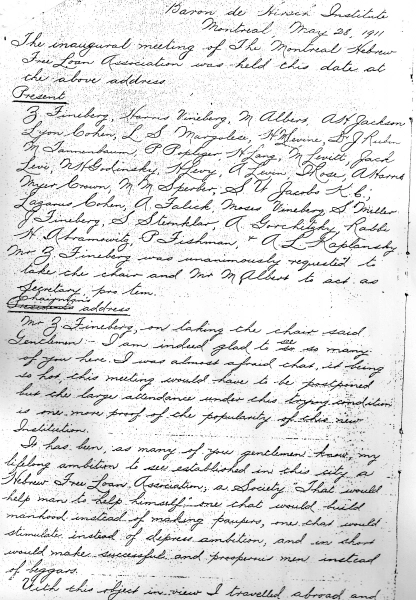 Baron de Hirsch Institute
Montreal, May 28, 1911
The inaugural meeting of The Montreal Hebrew
Free Loan Association was held this date at
the above address
Present
Z. Fineberg, Harris Vineberg, M Albert, A H Jackson
Lyon Cohen, L S Margolese, H M Levine, Dr J Rubin
M Tannenbaum, P Popliger, H Lang, M Levitt, Jack
Levi, N H Godinsky, H Levy, A Lewin, I Rose, A Harris
Myer Cown, M M Sperber, S W Jacobs K.C.,
Lazarus Cohen, A Falick, Moses Vineberg S Miller
J Fineberg, S Stronklar, A Gorchitzky, Rabbi
H. Abramowitz, P Fishman, + A L Kaplansky
Mr Z Fineberg was unanimously requested to
take the chair and Mr M Albert to act as
Secretary, pro tem.
Chairman's
address
Mr Z Fineberg, on taking the chair said
Gentlemen - I am indeed glad to see so many
of you here. I was almost afraid that, it being
so hot, this meeting would have to be postponed
but the large attendance under this trying condition
is one more proof of the popularity of this new
Institution.
It has been, as many of you gentlemen know, my
lifelong ambition to see established in this city a
Hebrew Free Loan Association, a Society "That would
help man to help himself" one that would build
manhood instead of making paupers, one that would
stimulate instead of depress ambition, and in short
would make successful and prosperous men instead
of beggars.
With this object in view I travelled abroad and